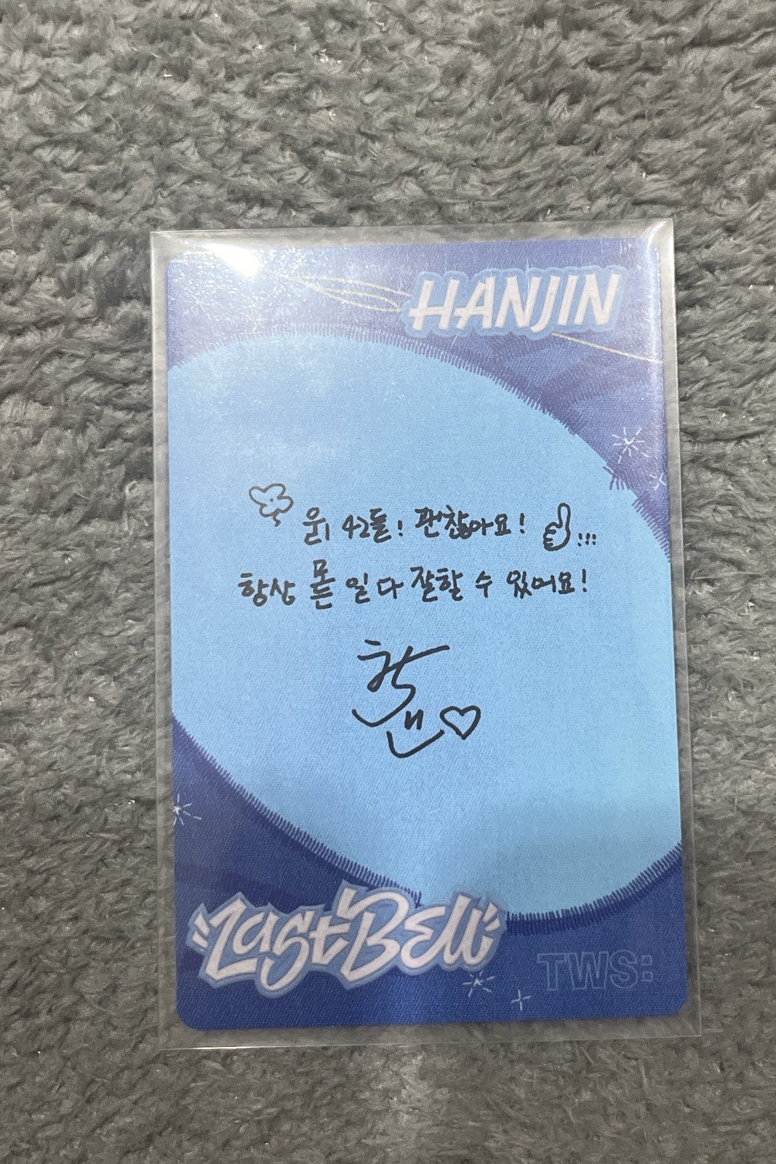 HANJIN
울ㅣ 42들! 괜찮아요!
항상 몯든 일 다 잘할 수 있어요!
Last Bell
TWS: